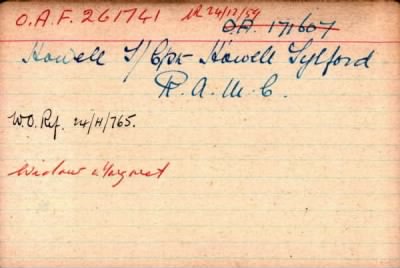 O.A.F. 261741 24/12/54 O.A. 171607
Howell T/Cpt Howell Tylford
R.A.M.C.
W.O. Ref. 24/H/765.
Widow Margaret